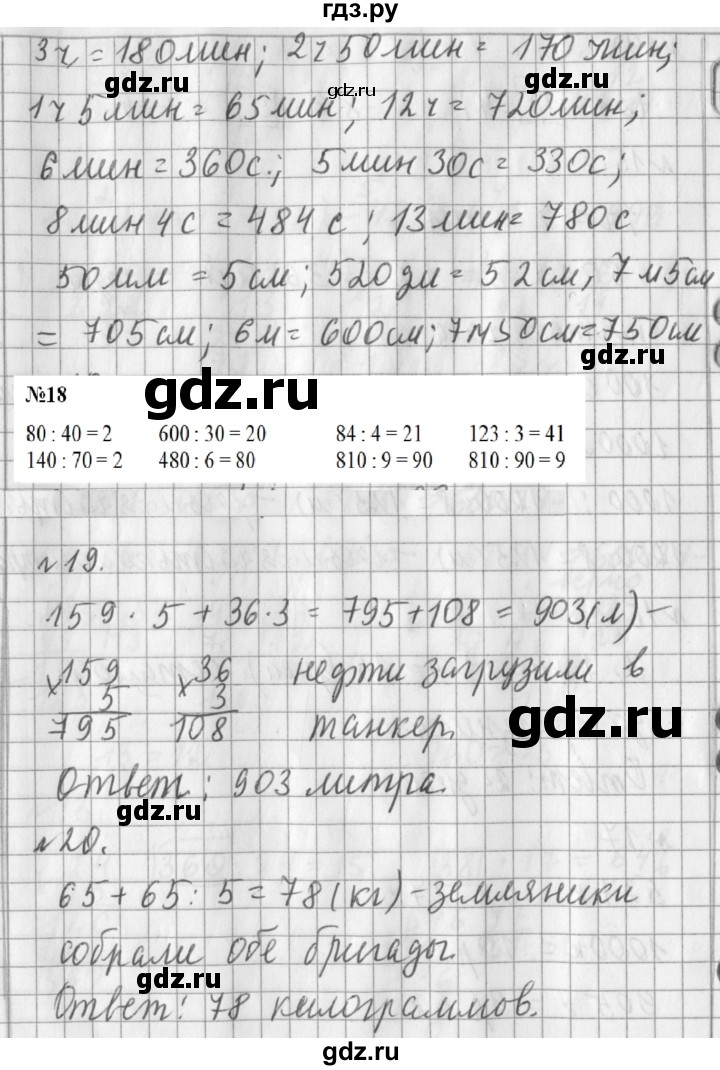 гдз.ру
3ч = 180мин; 2ч 50мин = 170 мин;
gdz.ru
gdz.ru
1ч 5мин = 65мин; 12ч = 720мин;
6мин = 360с.; 5мин 30с = 330с;
gdz.ru
8мин 4с = 484с; 13мин = 780с
gdz.ru
50мм = 5см; 520дм = 52см, 7м5см
= 705см; 6м = 600см; 7м50см=750см
gdz.ru
№18 gdz.ru
80 : 40 = 2 600 : 30 = 20 84 : 4 = 21 123 : 3 = 41
140 : 70 = 2 480 : 6 = 80 810 : 9 = 90 810 : 90 = 9
gdz.ru
№19.
159 · 5 + 36·3 = 795+108 = 903(л) –
×159 ×36 нефти загрузили в
5 3
795 108 танкер.
gdz.ru
gdz.ru
Ответ: 903 литра.
gdz.ru
№20.
65 + 65 : 5 = 78 (кг) – земляники
собрали обе бригады.
gdz.ru
Ответ: 78 килограммов.
gdz.ru
gdz.ru